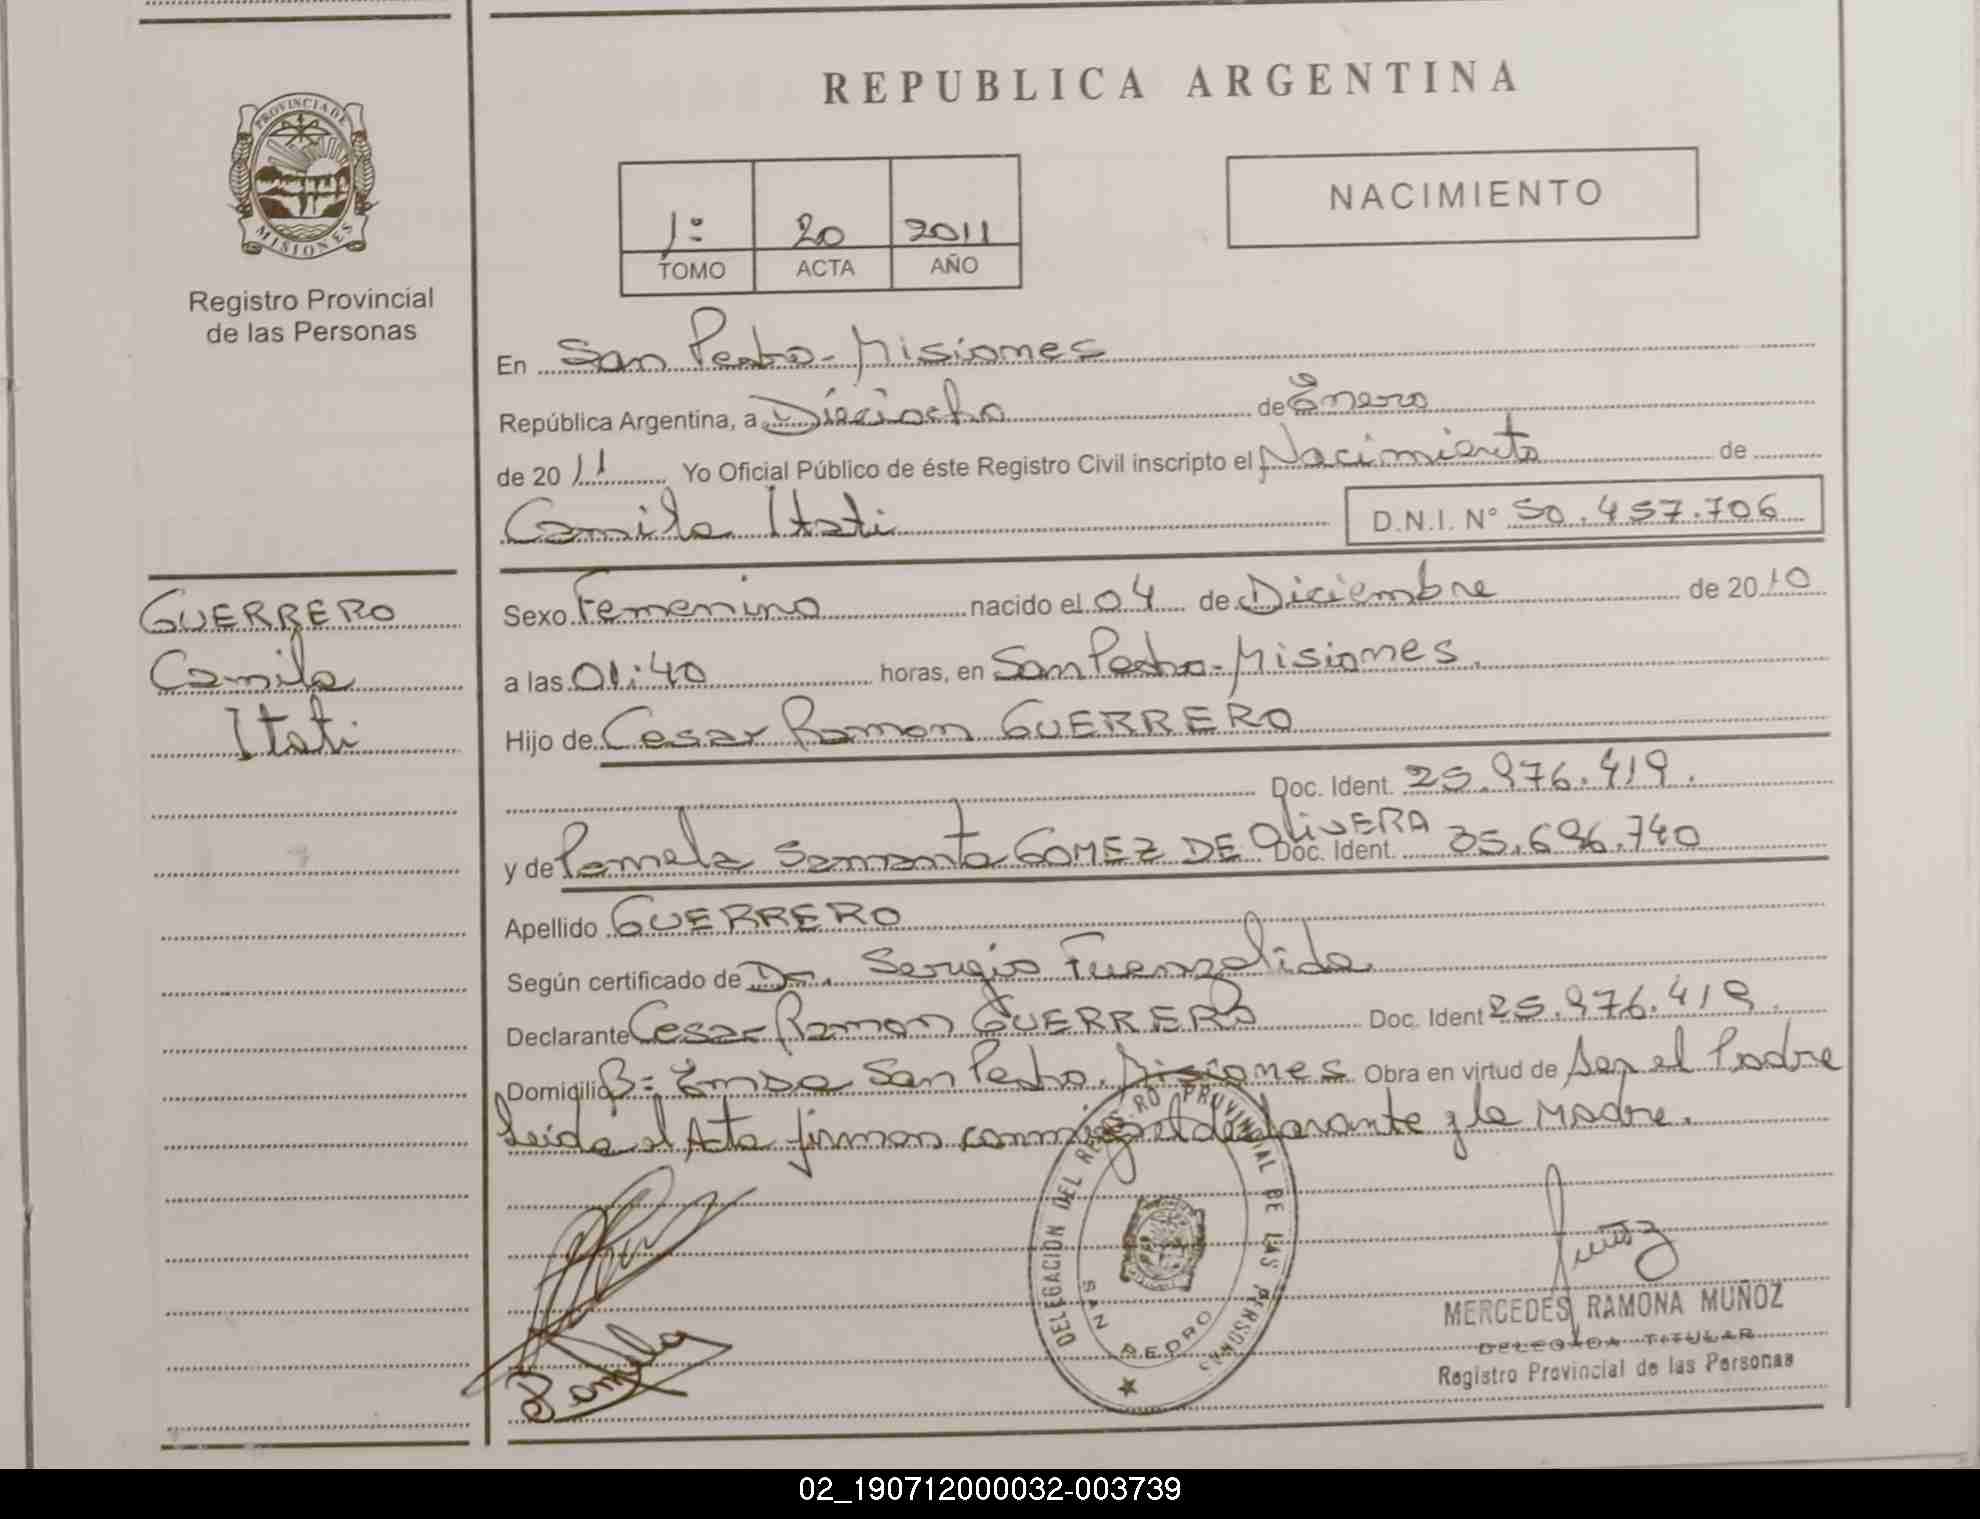 REPUBLICA ARGENTINA
PROVINCIA DE
MISIONES
Registro Provincial
de las Personas
1º 20 2011
TOMO ACTA AÑO
NACIMIENTO
En San Pedro - Misiones
República Argentina, a Dieciocho de Enero
de 2011 Yo Oficial Público de éste Registro Civil inscripto el Nacimiento de
Camila Itati D.N.I. Nº 50.457.706
GUERRERO
Camila
Itati
Sexo Femenino nacido el 04 de Diciembre de 2010
a las 01:40 horas, en San Pedro - Misiones.
Hijo de Cesar Ramon GUERRERO
Doc. Ident. 25.976.419.
y de Pamela Samanta GOMEZ DE OLIVERA Doc. Ident. 35.696.740
Apellido GUERRERO
Según certificado de Dr. Sergio Fuenzalida
Declarante Cesar Ramon GUERRERO Doc. Ident 25.976.419.
Domicilio Bº Emsa San Pedro. Misiones Obra en virtud de Ser el Padre
Leida el Acta firman conmigo el declarante y la Madre.
DELEGACION DEL REGISTRO PROVINCIAL DE LAS PERSONAS
SAN PEDRO
Pamela
Muñoz
MERCEDES RAMONA MUÑOZ
DELEGADA TITULAR
Registro Provincial de las Personas
02_190712000032-003739